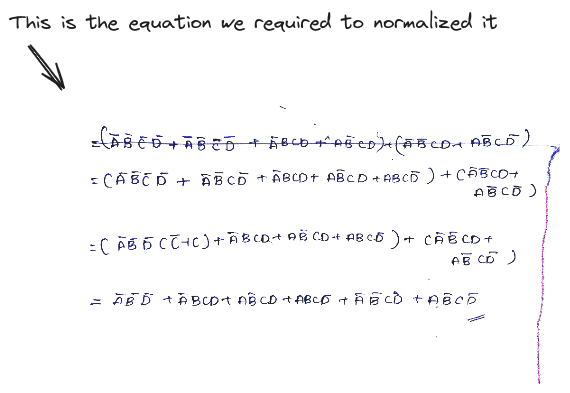 This is the equation we required to normalized it
=(A̅B̅C̅D̅ + A̅B̅C̅D̅ + A̅BCD + AB̅CD)+(A̅B̅CD+ AB̅CD̅)
=(A̅B̅C̅D̅ + A̅B̅CD̅ + A̅BCD+ AB̅CD +ABCD̅) + (A̅B̅CD+
AB̅CD̅)
=( A̅B̅D̅ (C̅+C)+A̅BCD+ AB̅CD+ABCD̅)+ (A̅B̅CD+
AB̅CD̅)
= A̅B̅D̅ +A̅BCD+ AB̅CD +ABCD̅ +A̅B̅CD +AB̅CD̅